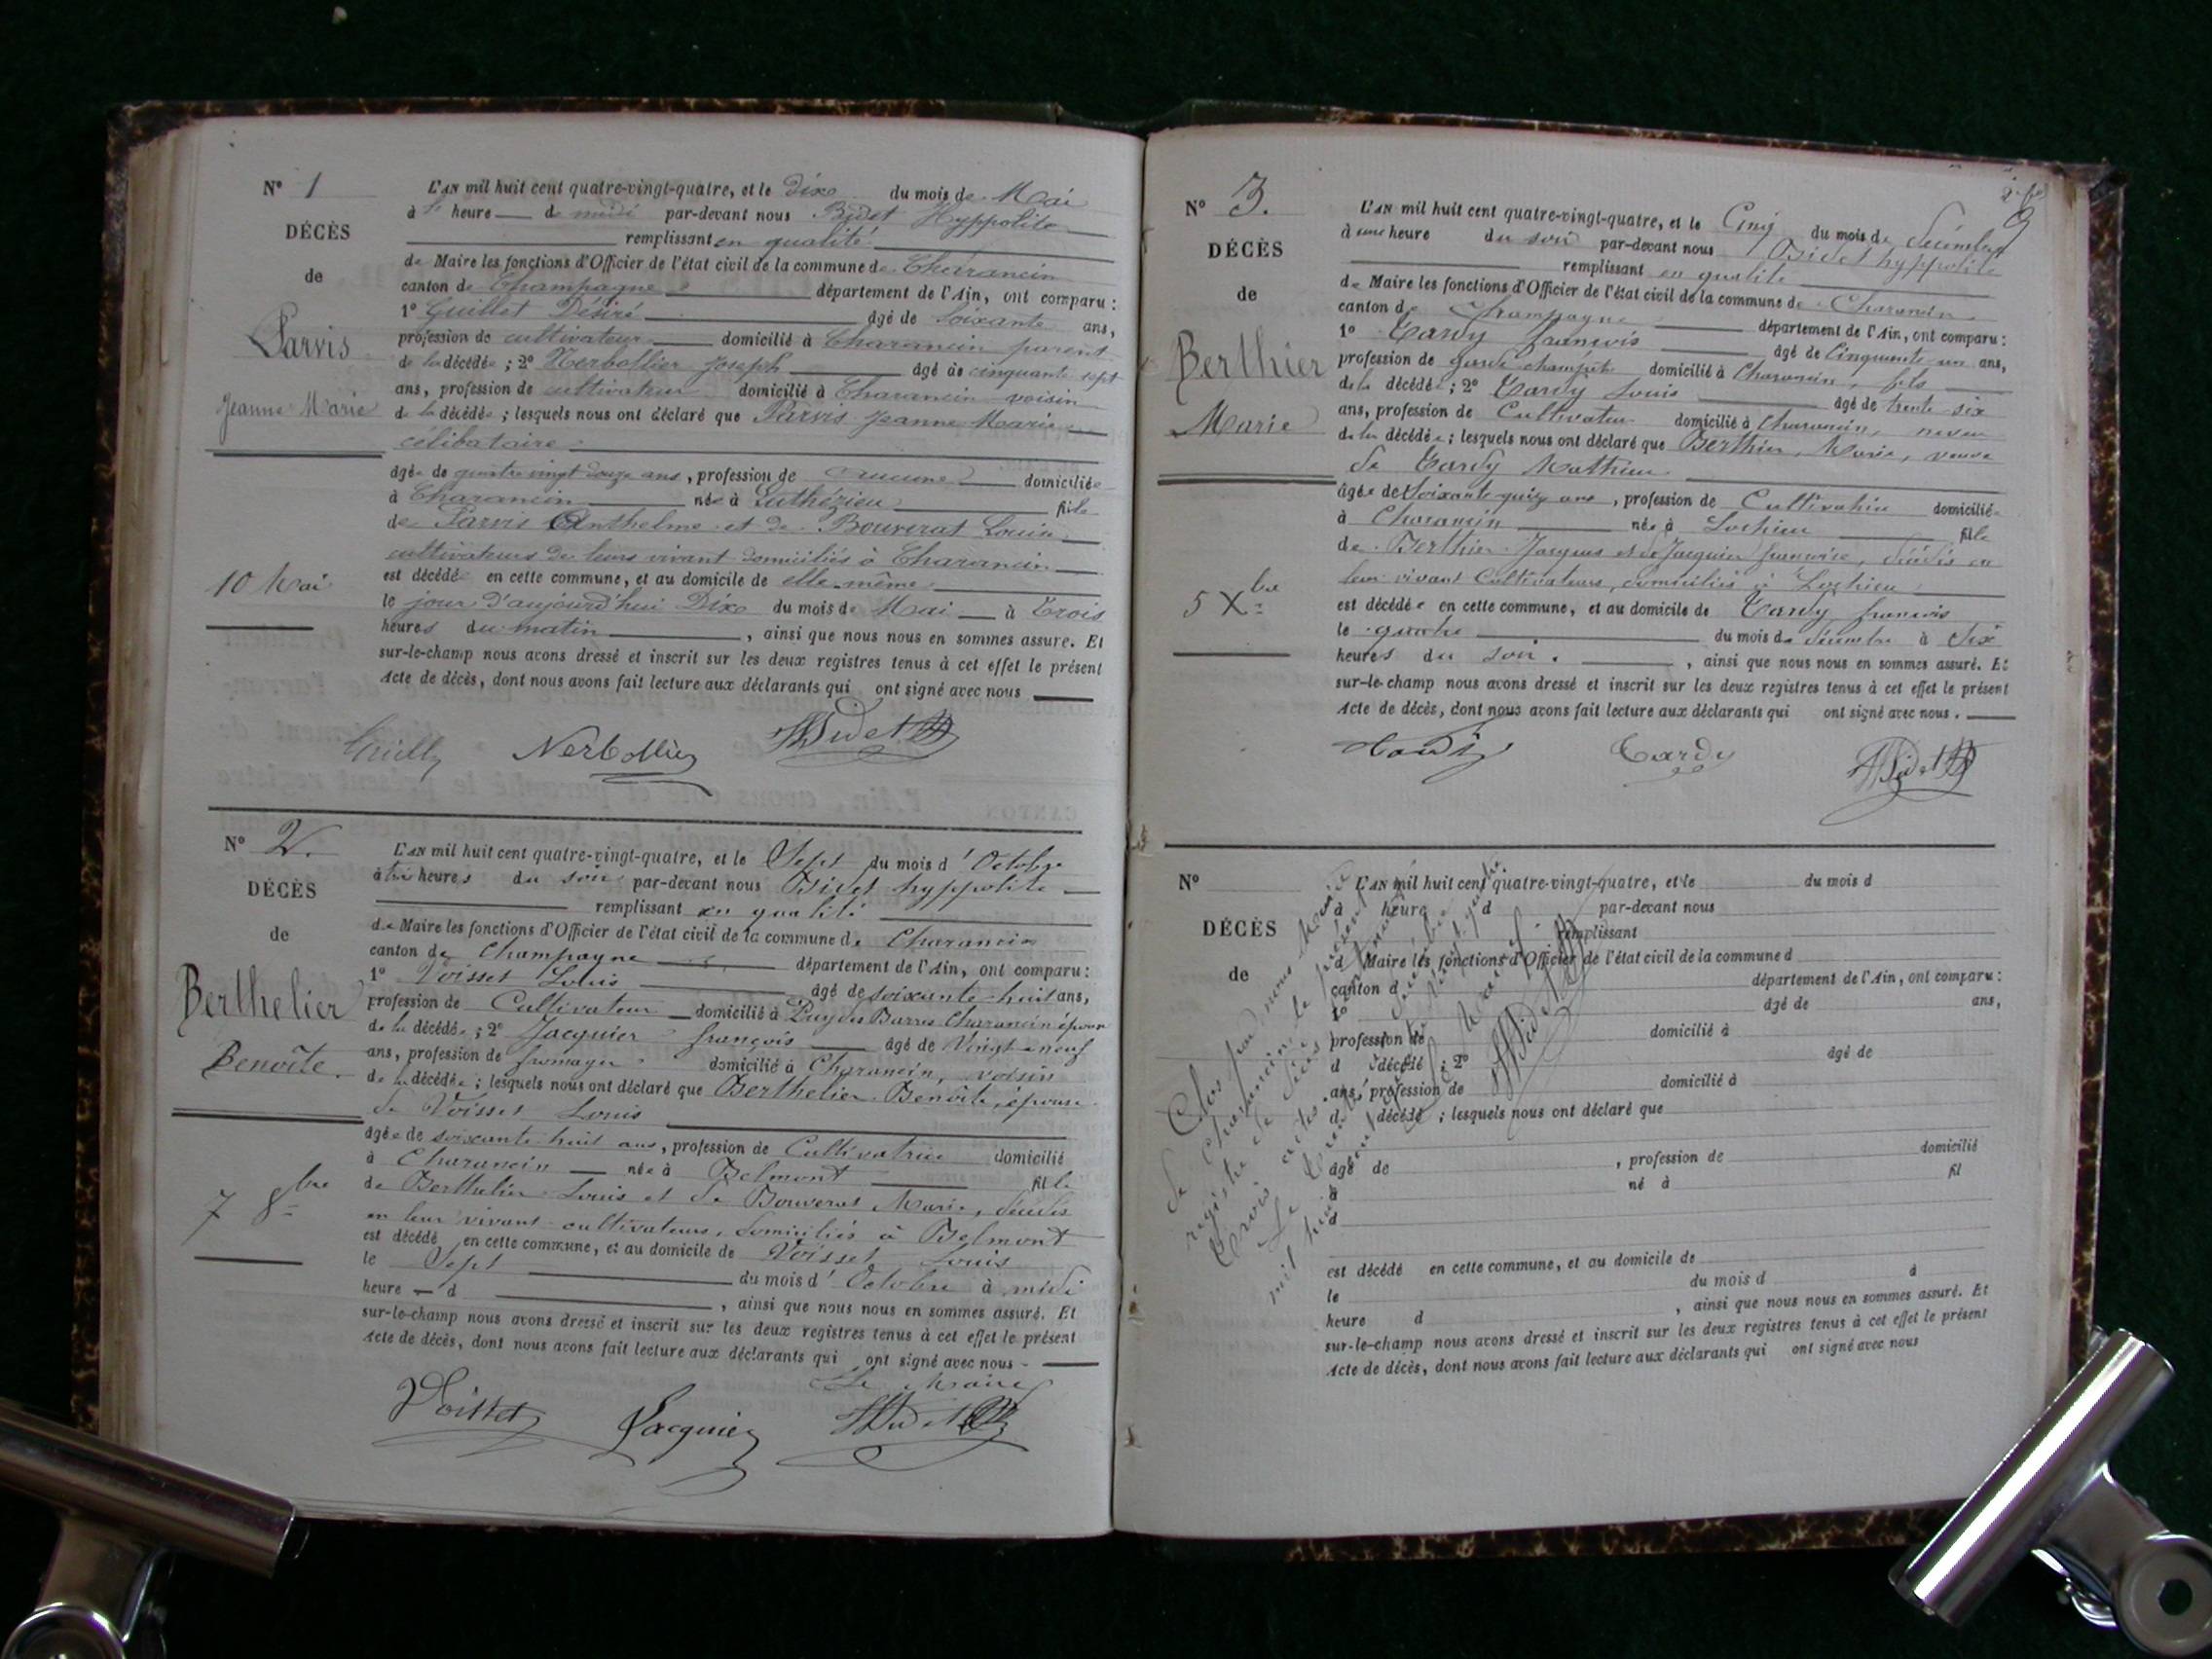 N° 1
DÉCÈS
de
Parvis
Jeanne Marie
10 Mai
L'AN mil huit cent quatre-vingt-quatre, et le Dix du mois de Mai
à heure de midi par-devant nous Bidet Hyppolite
remplissant en qualité
de Maire les fonctions d'Officier de l'état civil de la commune de Charancin
canton de Champagne département de l'Ain, ont comparu :
1° Guillet Désiré âgé de soixante ans,
profession de cultivateur domicilié à Charancin parent
de la décédée ; 2° Nerbollier Joseph âgé de cinquante sept
ans, profession de cultivateur domicilié à Charancin voisin
de la décédée ; lesquels nous ont déclaré que Parvis Jeanne Marie
célibataire
âgée de quatre vingt douze ans, profession de aucune domiciliée
à Charancin née à Luthézieu fille
de Parvis Anthelme et de Bouverat Louise
cultivateurs de leurs vivant domiciliés à Charancin
est décédée en cette commune, et au domicile de elle même
le jour d'aujourd'hui Dix du mois de Mai à Trois
heures du matin , ainsi que nous nous en sommes assuré. Et
sur-le-champ nous avons dressé et inscrit sur les deux registres tenus à cet effet le présent
Acte de décès, dont nous avons fait lecture aux déclarants qui ont signé avec nous
Nerbollier HBidet
N° 2.
DÉCÈS
de
Berthelier
Benoîte.
7 8bre
L'AN mil huit cent quatre-vingt-quatre, et le Sept du mois d'Octobre
à trois heures du soir par-devant nous Bidet hyppolite
remplissant en qualité
de Maire les fonctions d'Officier de l'état civil de la commune de Charancin
canton de Champagne département de l'Ain, ont comparu :
1° Voisset Louis âgé de soixante-huit ans,
profession de Cultivateur domicilié à Puy des Barres Charancin époux
de la décédée ; 2° Jacquier françois âgé de Vingt-neuf
ans, profession de fromager domicilié à Charancin, voisin
de la décédée ; lesquels nous ont déclaré que Berthelier Benoîte, épouse
de Voisset Louis
âgée de soixante-huit ans, profession de Cultivatrice domicilié
à Charancin née à Belmont fille
de Berthelier Louis et de Bouverat Marie, décédés
en leur vivant cultivateurs, domiciliés à Belmont
est décédé en cette commune, et au domicile de Voisset Louis
le Sept du mois d'Octobre à midi
heure d , ainsi que nous nous en sommes assuré. Et
sur-le-champ nous avons dressé et inscrit sur les deux registres tenus à cet effet le présent
Acte de décès, dont nous avons fait lecture aux déclarants qui ont signé avec nous
Le Maire
Voisset Jacquier HBidet
N° 3.
DÉCÈS
de
Berthier
Marie
5 Xbre
L'AN mil huit cent quatre-vingt-quatre, et le Cinq du mois de Décembre
à une heure du soir par-devant nous Bidet hyppolite
remplissant en qualité
de Maire les fonctions d'Officier de l'état civil de la commune de Charancin
canton de Champagne département de l'Ain, ont comparu :
1° Tardy françois âgé de Cinquante un ans,
profession de garde champêtre domicilié à Charancin, fils
de la décédée ; 2° Tardy Louis âgé de trente six
ans, profession de Cultivateur domicilié à Charancin, neveu
de la décédée ; lesquels nous ont déclaré que Berthier, Marie, veuve
de Tardy Mathieu
âgée de Soixante quinze ans, profession de Cultivatrice domiciliée
à Charancin née à Lochieu fille
de Berthier Jacques et de Jacquier françoise, décédés en
leur vivant Cultivateurs, domiciliés à Lochieu
est décédée en cette commune, et au domicile de Tardy françois
le quatre du mois de décembre à Six
heures du soir , ainsi que nous nous en sommes assuré. Et
sur-le-champ nous avons dressé et inscrit sur les deux registres tenus à cet effet le présent
Acte de décès, dont nous avons fait lecture aux déclarants qui ont signé avec nous .
Tardy Tardy HBidet
N°
DÉCÈS
de
L'AN mil huit cent quatre-vingt-quatre, et le du mois d
à heure d par-devant nous
remplissant
d Maire les fonctions d'Officier de l'état civil de la commune d
canton d département de l'Ain, ont comparu :
1° âgé de ans,
profession de domicilié à
d décédé ; 2° âgé de
ans, profession de domicilié à
d décédé ; lesquels nous ont déclaré que
âgé de , profession de domicilié
à né à fil
d
est décédé en cette commune, et au domicile de
le du mois d à
heure d , ainsi que nous nous en sommes assuré. Et
sur-le-champ nous avons dressé et inscrit sur les deux registres tenus à cet effet le présent
Acte de décès, dont nous avons fait lecture aux déclarants qui ont signé avec nous
Clos par nous Maire
de Charancin, le présent
registre de Décès
Trois actes.
Le Maire
HBidet